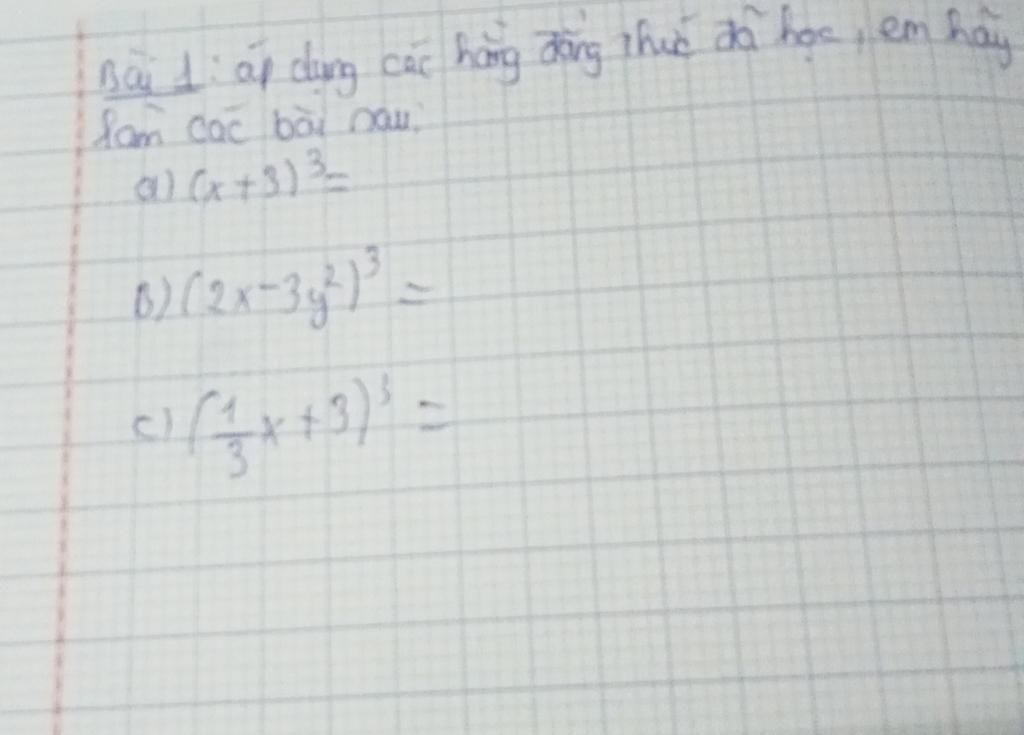 Bài 1: áp dụng các hằng đẳng thức đã học, em hãy
làm các bài sau:
a) (x+3)³=
b) (2x-3y²)³ =
c) (1/3 x+3)³ =